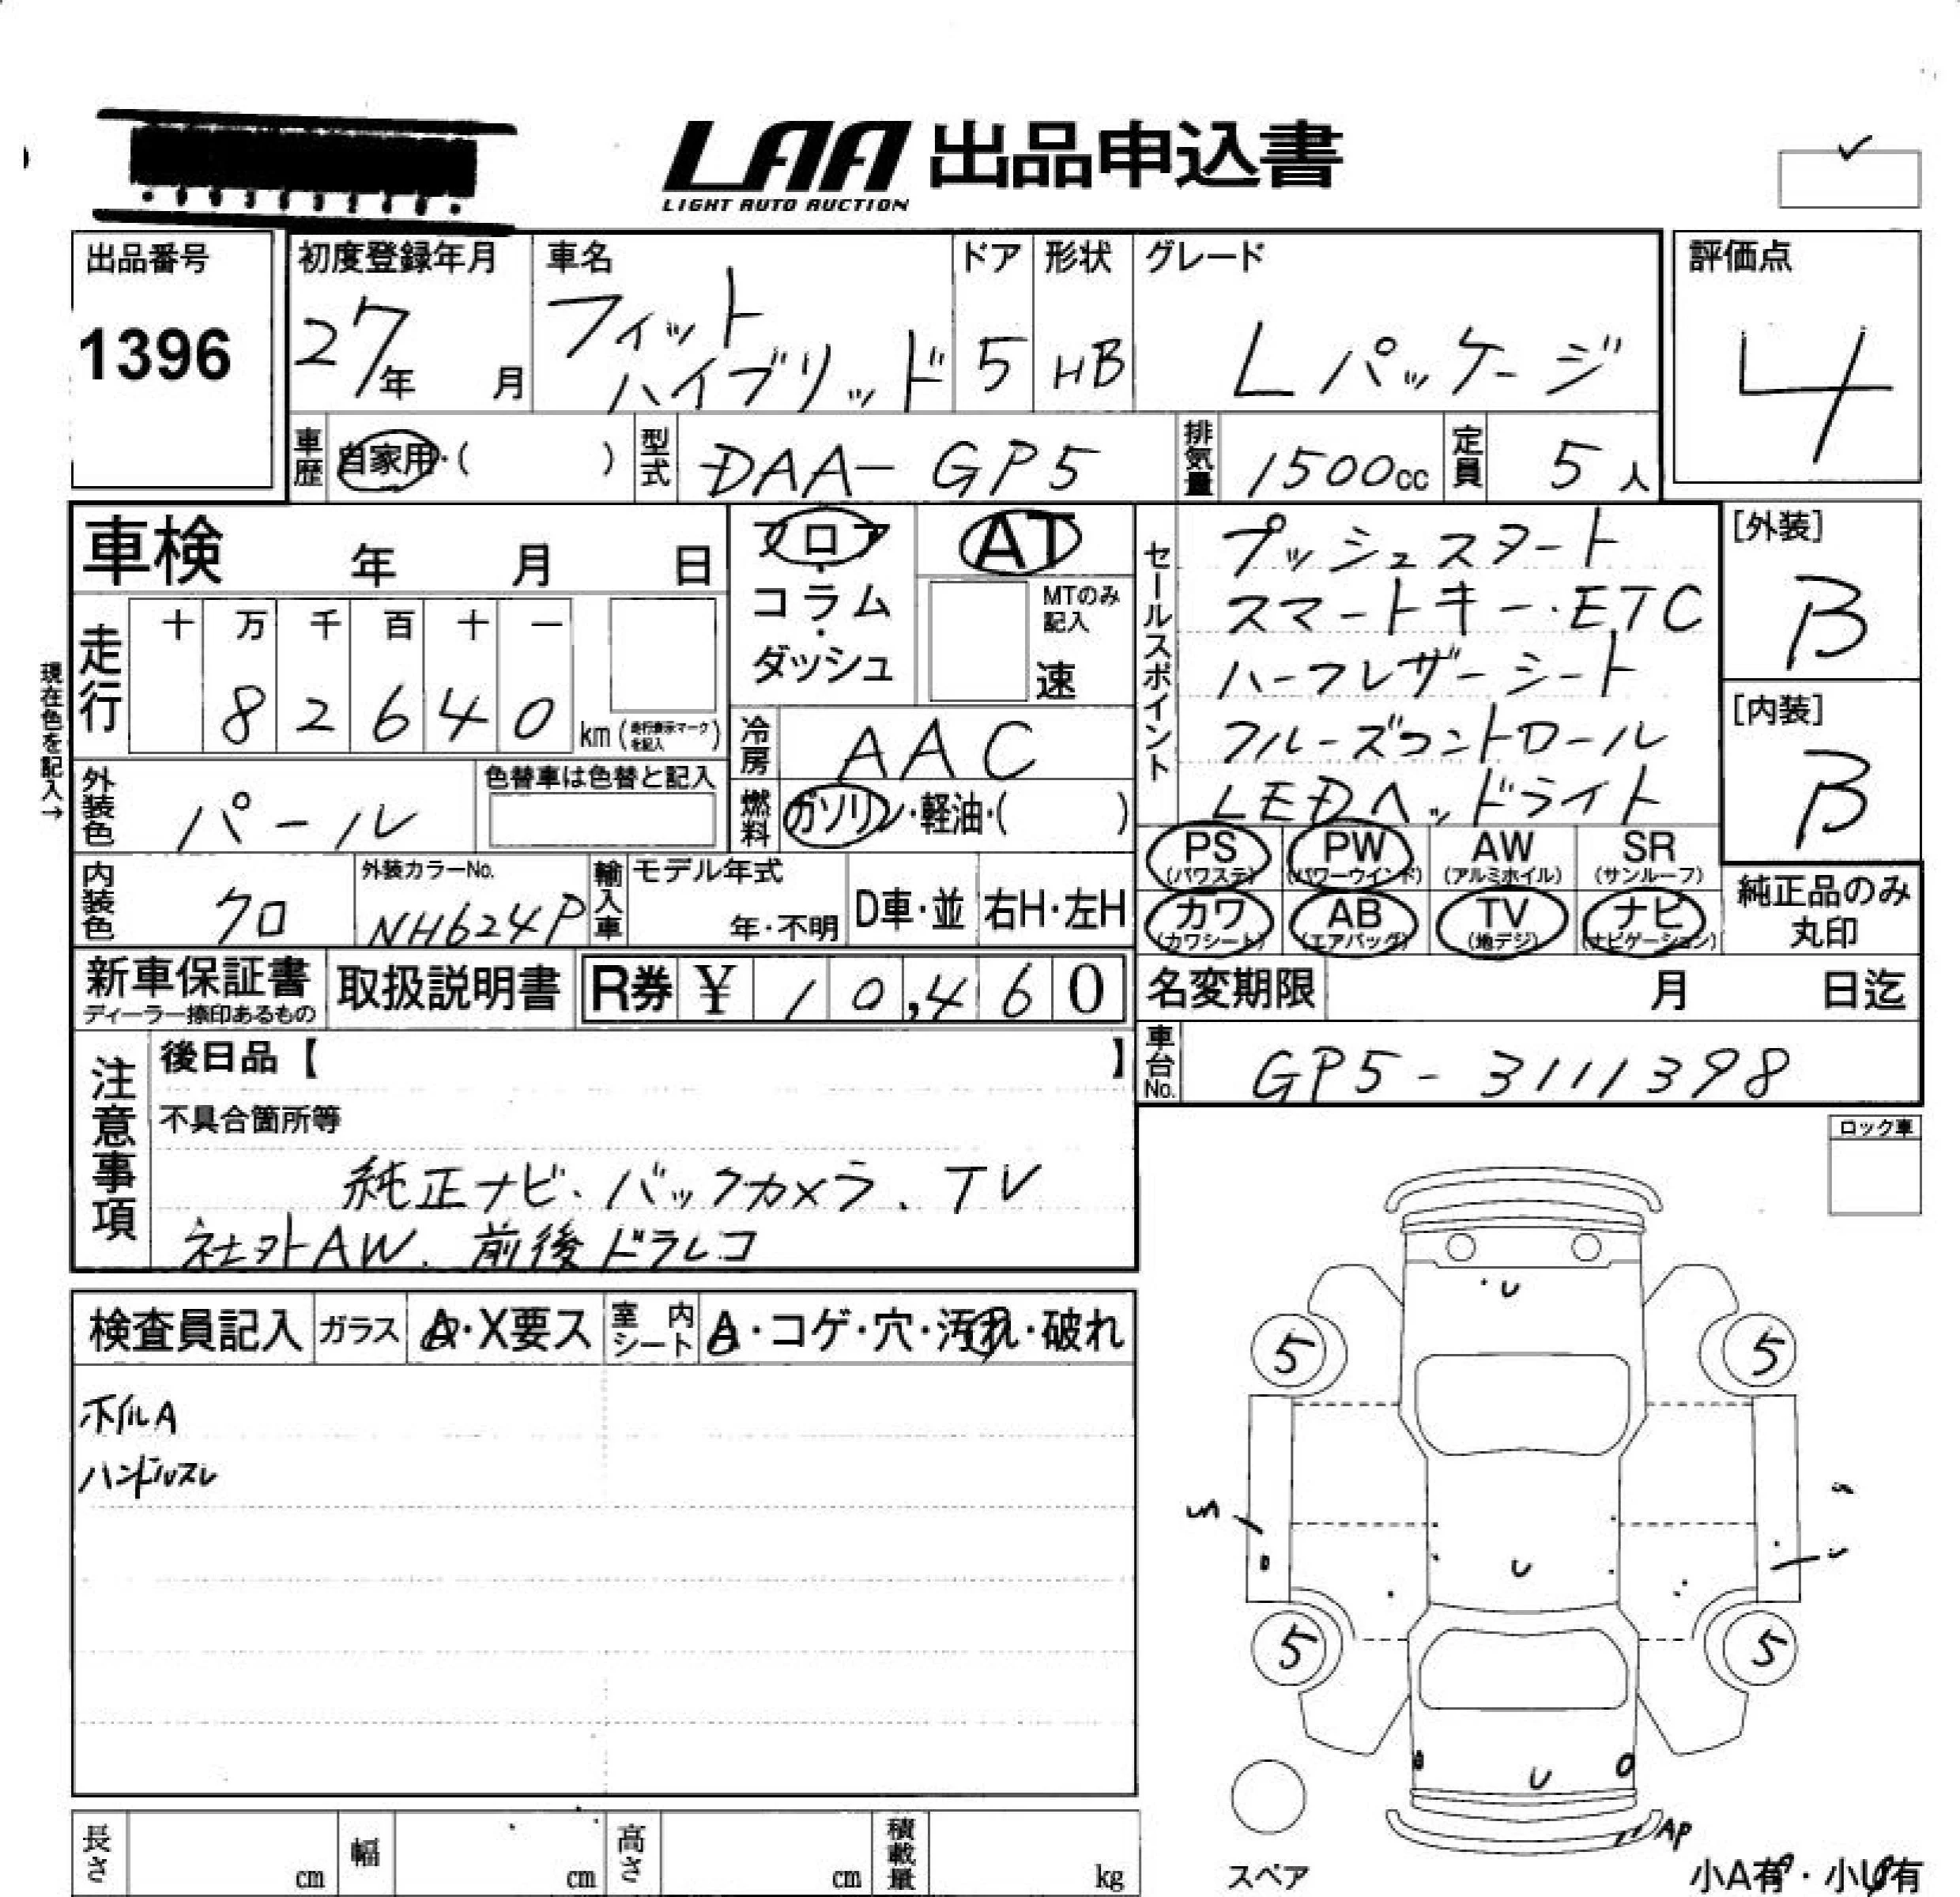 LAA 出品申込書
LIGHT AUTO AUCTION
出品番号
1396
初度登録年月
27年 月
車名
フィット
ハイブリッド
ドア
5
形状
HB
グレード
Lパッケージ
評価点
4
車歴
自家用・( )
型式
DAA-GP5
排気量
1500cc
定員
5人
車検 年 月 日
現在色を記入→
走行
十 万 千 百 十 一
8 2 6 4 0
km(走行表示マークを記入)
フロア・コラム・ダッシュ
AT
MTのみ
記入
速
冷房
AAC
燃料
ガソリン・軽油・( )
外装色
パール
色替車は色替と記入
内装色
クロ
外装カラーNo.
NH624P
輸入車
モデル年式
年・不明
D車・並
右H・左H
セールスポイント
プッシュスタート
スマートキー・ETC
ハーフレザーシート
クルーズコントロール
LEDヘッドライト
[外装]
B
[内装]
B
PS PW AW SR
(パワステ) (パワーウインド) (アルミホイル) (サンルーフ)
カワ AB TV ナビ
(カワシート) (エアバッグ) (地デジ) (ナビゲーション)
純正品のみ
丸印
新車保証書
ディーラー捺印あるもの
取扱説明書
R券 ¥ 10,460
名変期限 月 日迄
車台No.
GP5-3111398
注意事項
後日品【 】
不具合箇所等
純正ナビ、バックカメラ、TV
社外AW、前後ドラレコ
ロック車
検査員記入
ガラス
A・X要ス
室内シート
A・コゲ・穴・汚れ・破れ
ホイルA
ハンドルスレ
U
5 5
S
U
5 5
U
AP
スペア
小A有・小U有
長さ cm
幅 cm
高さ cm
積載量 kg